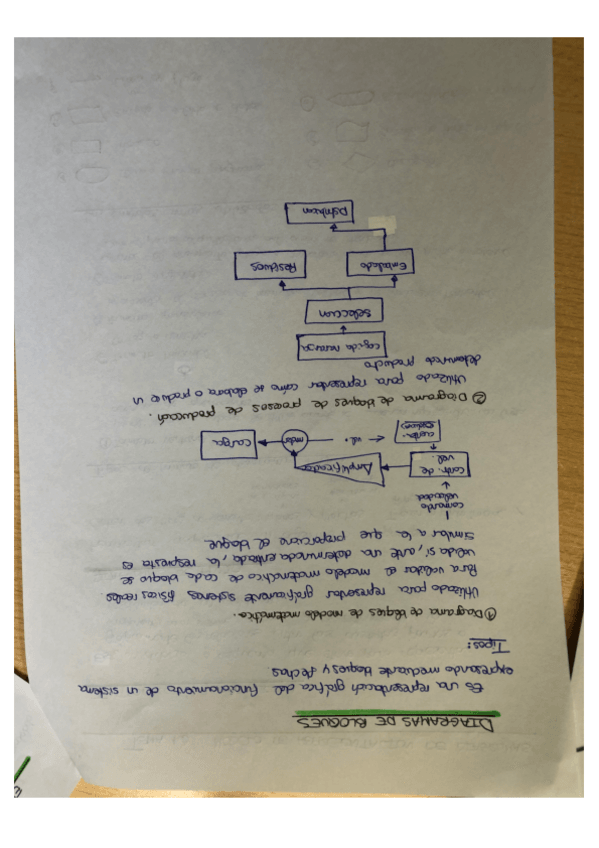 DIAGRAMAS DE BLOQUES
Es una representación gráfica del funcionamiento de un sistema
expresando mediante bloques y flechas
Tipos:
① Diagrama de bloques de modelo matemático.
Utilizado para representar gráficamente sistemas físicos reales
Para validar el modelo matemático de cada bloque se
valida si, ante una determinada entrada, la respuesta es
similar a la que proporciona el bloque
comando
velocidad
contr. de
vel.
Amplificador
motor
carga
vel.
② Diagrama de bloques de procesos de producción.
Utilizado para representar cómo se elabora o produce un
determinado producto
cogida naranja
selección
Embalado
Residuos